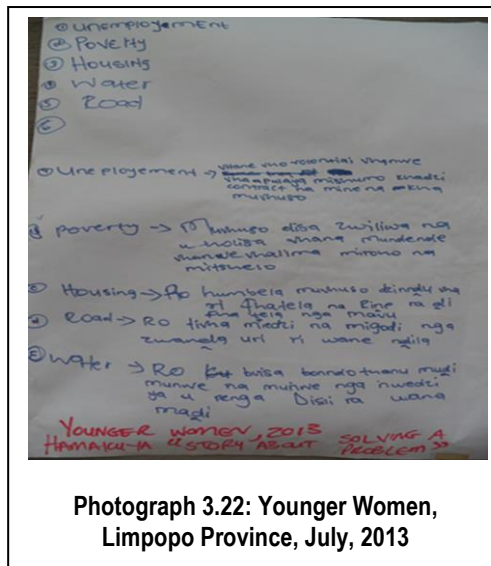 ① UNEMPLOYEMENT
② POVERTY
③ HOUSING
④ Water
⑤ Road
⑥
① Uneployement → vhane vho rotontiai vhanwe
vha mishumo
contract na mine na kina
mushuso
poverty → Mushuso disa zwiliwa na
u holisa vhana mundende
vhanwe vhalima mirono na
mitshelo
③ Housing → Ro humbela mushuso dzinndu vha
ri fhatela na Rine ra di
fhatela nga mavu
④ Road → Ro tivha miedzi na migodi nga
zwanda uri ri wane ndila
⑤ Water → Ro bvisa bonndo tuanu mudi
munwe na munwe nga nwedzi
ya u renga Disili ra wana
madi
YOUNGER WOMEN, 2013
HAMAKUYA "STORY ABOUT SOLVING A
PROBLEM"
Photograph 3.22: Younger Women,
Limpopo Province, July, 2013